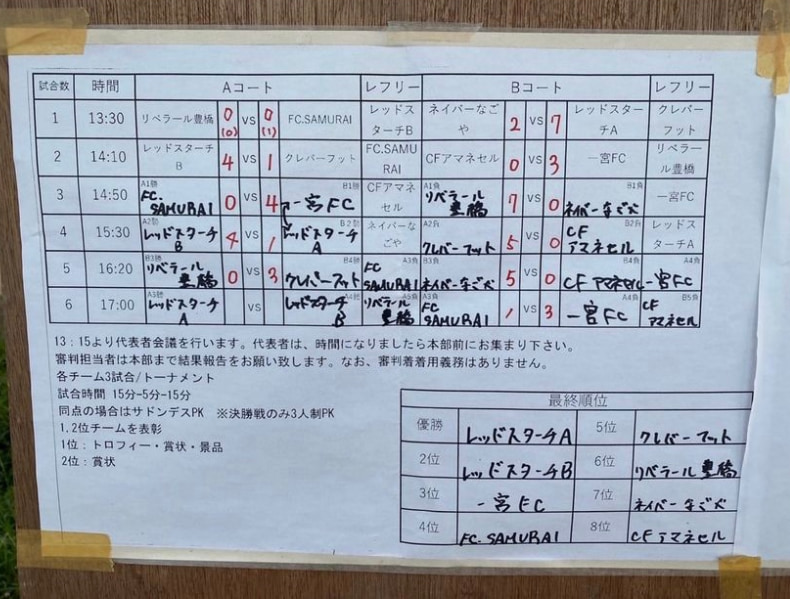 試合数 時間 Aコート レフリー Bコート レフリー
1 13:30 リベラール豊橋 0(0) VS 0(1) FC.SAMURAI レッドスターチB ネイバーなごや 2 VS 7 レッドスターチA クレバーフット
2 14:10 レッドスターチB 4 VS 1 クレバーフット FC.SAMURAI CFアマネセル 0 VS 3 一宮FC リベラール豊橋
3 14:50 A1勝 FC.SAMURAI 0 VS 4 B1勝 一宮FC CFアマネセル A1負 リベラール豊橋 7 VS 0 B1負 ネイバーなごや 一宮FC
4 15:30 A2勝 レッドスターチB 4 VS 1 B2勝 レッドスターチA ネイバーなごや A2負 クレバーフット 5 VS 0 B2負 CFアマネセル レッドスターチA
5 16:20 B3勝 リベラール豊橋 0 VS 3 B4勝 クレバーフット A3負 FC SAMURAI B3負 ネイバーなごや 5 VS 0 B4負 CFアマネセル A4負 一宮FC
6 17:00 A3勝 レッドスターチA VS レッドスターチB A5負 リベラール豊橋 A3負 FC SAMURAI 1 VS 3 A4負 一宮FC B5負 CFアマネセル
13:15より代表者会議を行います。代表者は、時間になりましたら本部前にお集まり下さい。
審判担当者は本部まで結果報告をお願い致します。なお、審判着着用義務はありません。
各チーム3試合/トーナメント
試合時間 15分-5分-15分
同点の場合はサドンデスPK ※決勝戦のみ3人制PK
1,2位チームを表彰
1位:トロフィー・賞状・景品
2位:賞状
最終順位
優勝 レッドスターチA 5位 クレバーフット
2位 レッドスターチB 6位 リベラール豊橋
3位 一宮FC 7位 ネイバーなごや
4位 FC.SAMURAI 8位 CFアマネセル